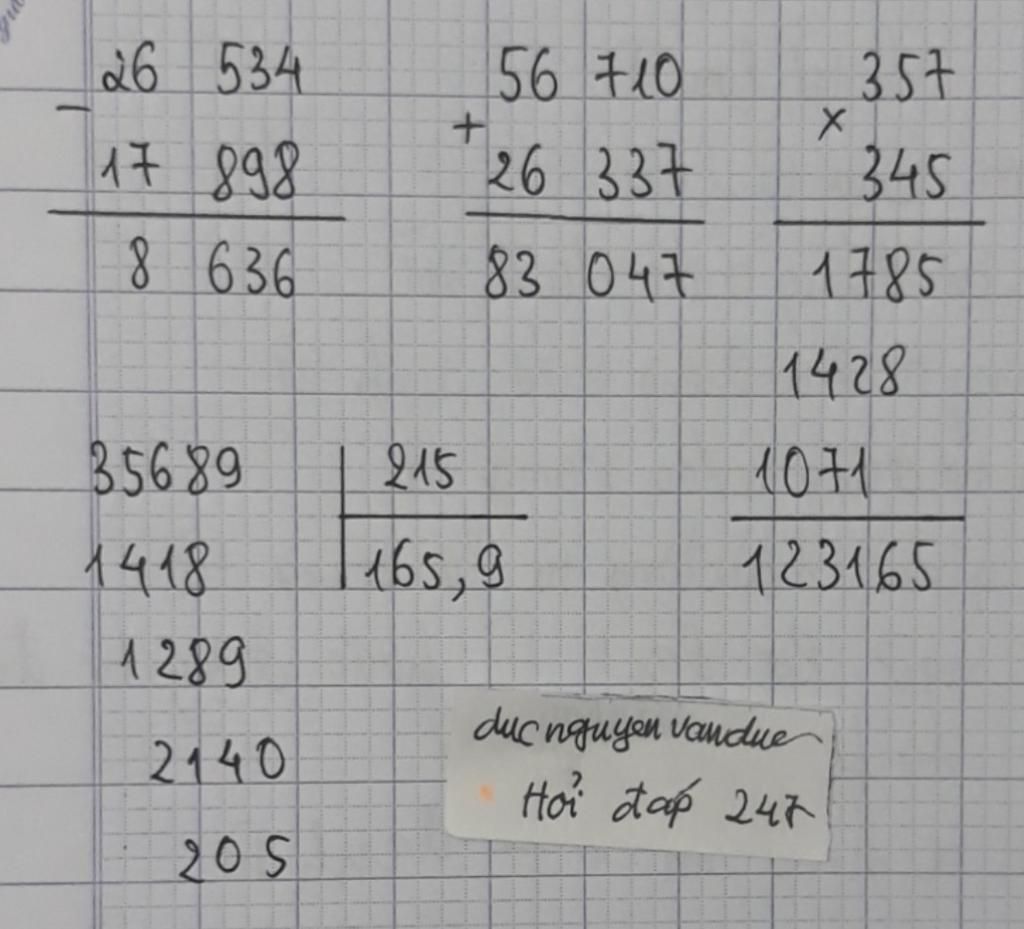 26 534
-
17 898
8 636
56 710
+
26 337
83 047
357
×
345
1785
1428
1071
123165
35689 215
1418 165,9
1289
2140
205
ducnguyenvanduc
Hỏi đáp 247